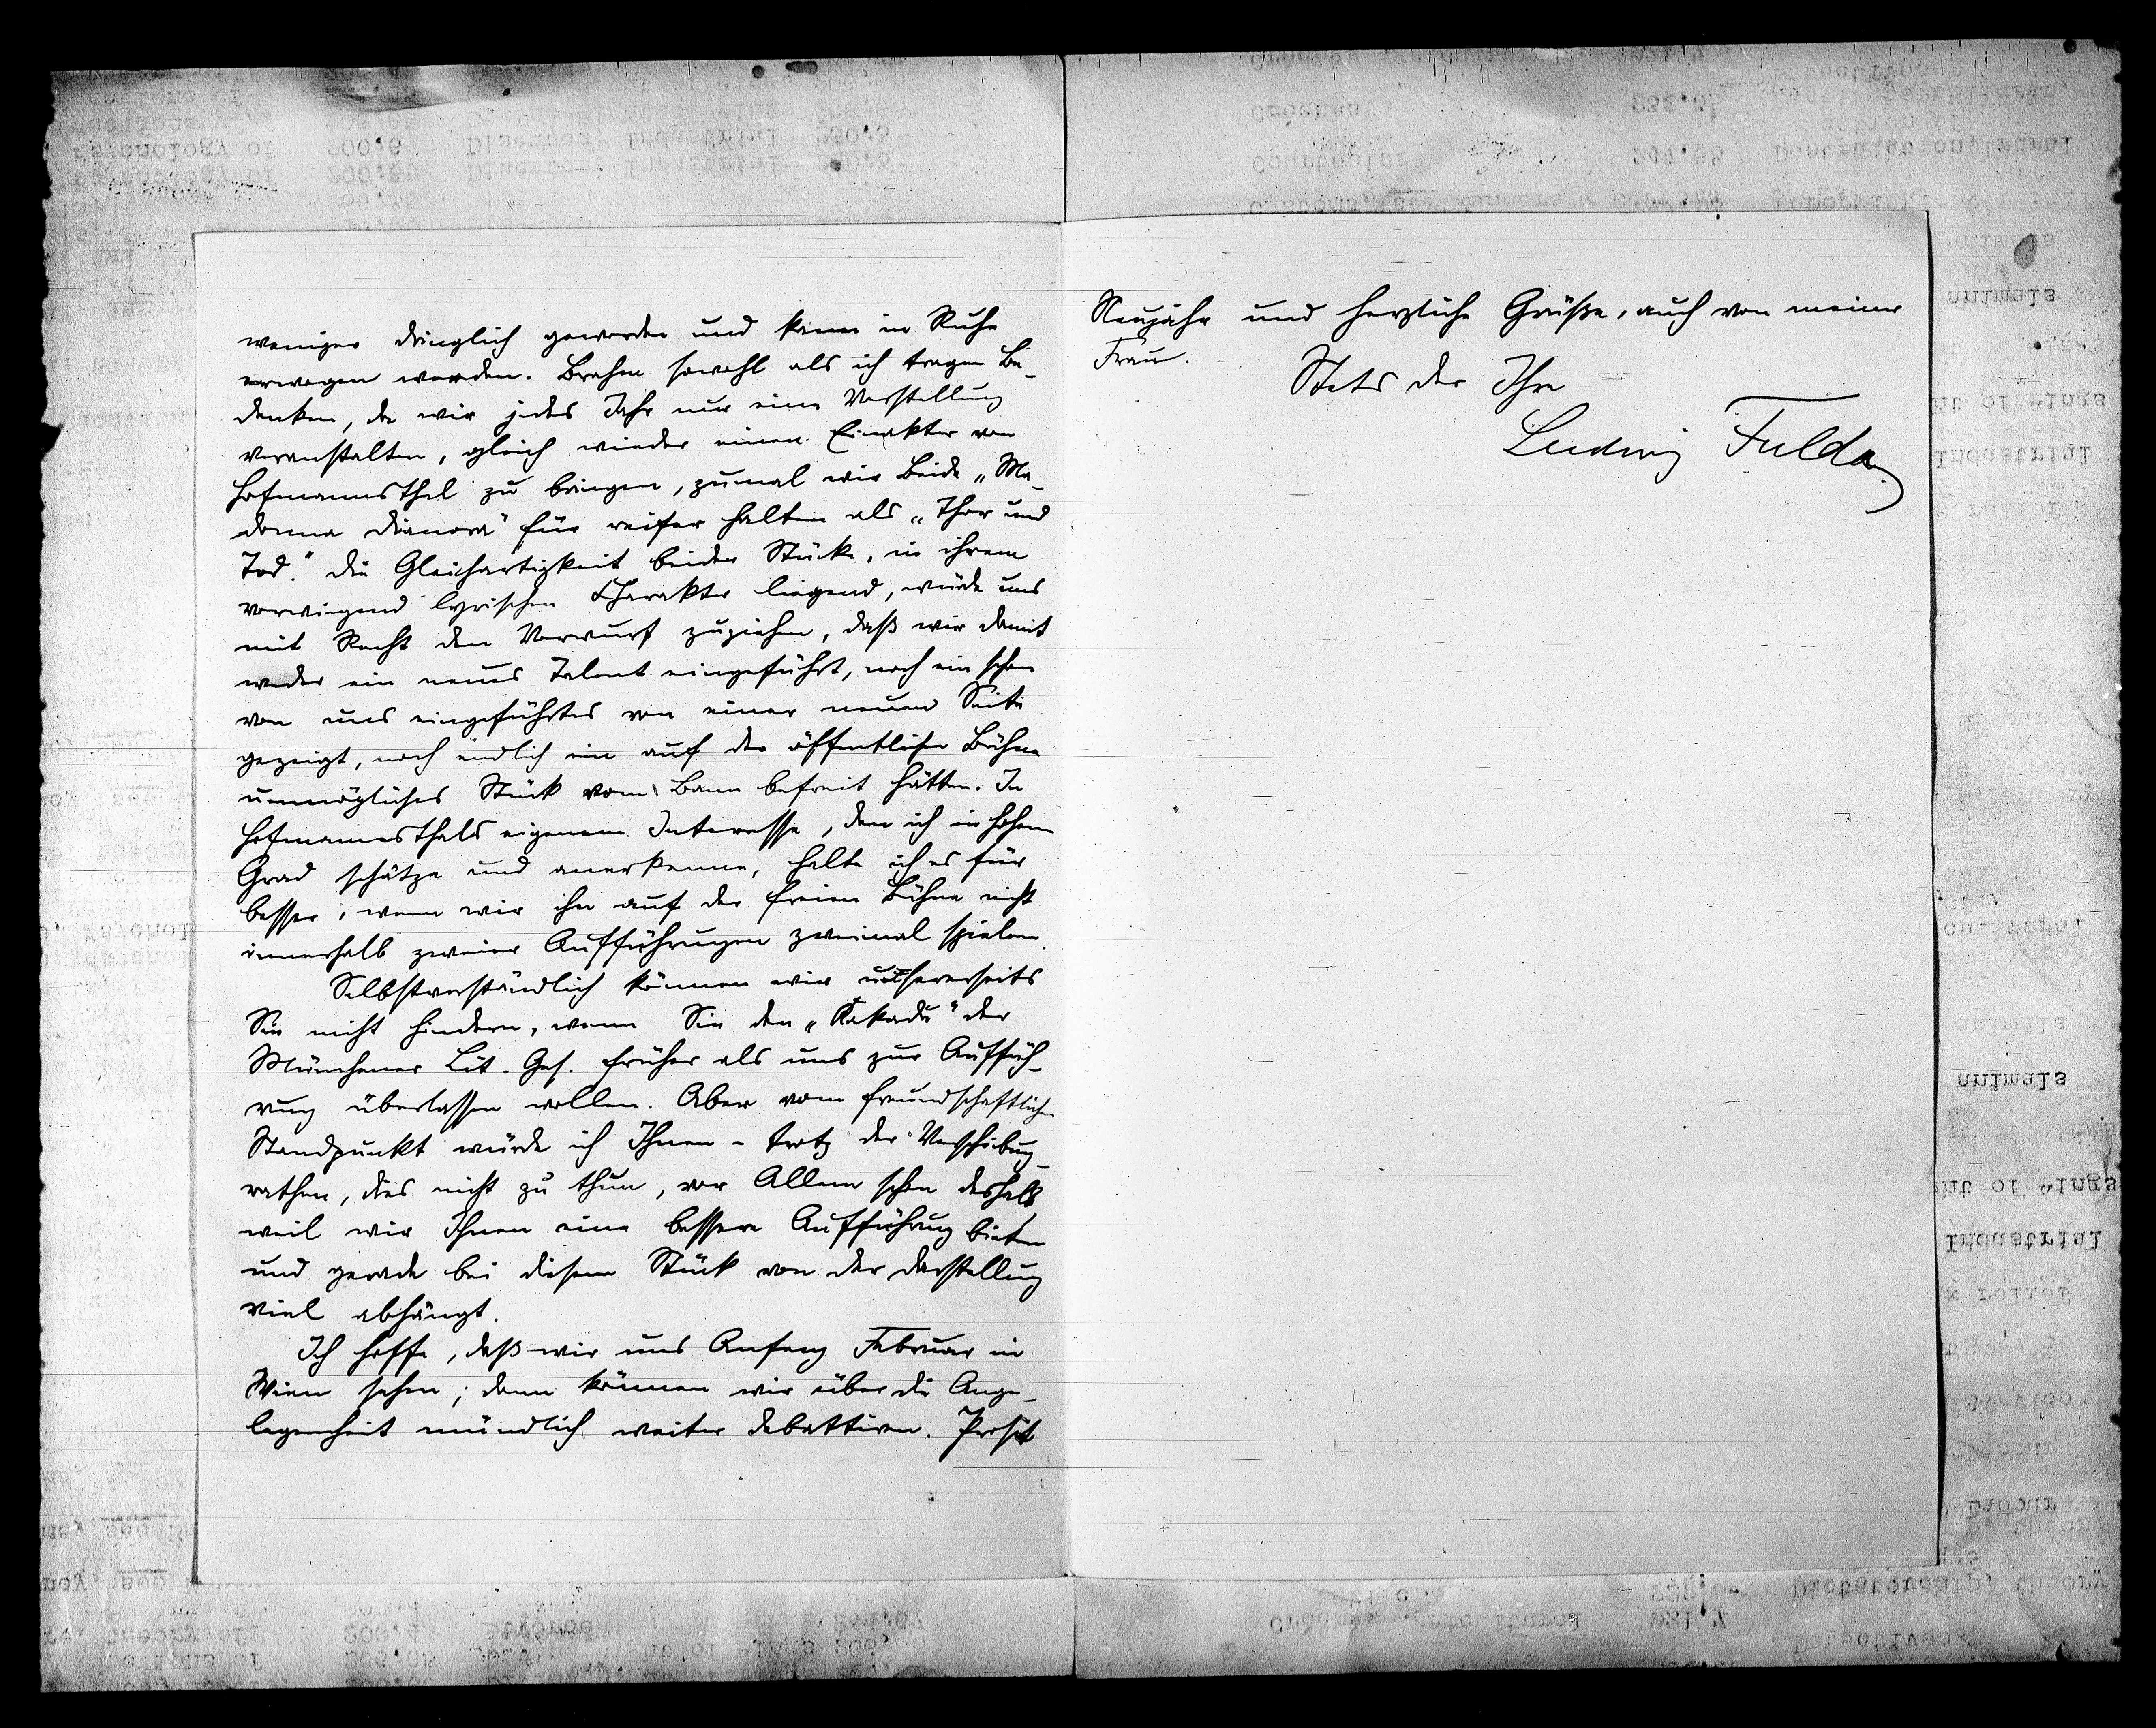 weniger dringlich geworden und kann in Ruhe
erwogen werden. Brahm sowohl als ich tragen Be-
denken, da wir jedes Jahr nur eine Vorstellung
veranstalten, gleich wieder einen Einakter von
Hofmannsthal zu bringen, zumal wir Beide „Ma-
donna Dianora" für reifer halten als „Thor und
Tod." Die Gleichartigkeit beider Stücke, in ihrem
vorwiegend lyrischen Charakter liegend, würde uns
mit Recht den Vorwurf zuziehen, daß wir damit
weder ein neues Talent eingeführt, noch ein schon
von uns eingeführtes von einer neuen Seite
gezeigt, noch endlich ein auf der öffentlichen Bühne
unmögliches Stück vom Bann befreit hätten. In
Hofmannsthals eigenem Interesse, den ich in hohem
Grad schätze und anerkenne, halte ich es für
besser, wenn wir ihn auf der freien Bühne nicht
innerhalb zweier Aufführungen zweimal spielen.
Selbstverständlich können wir unsererseits
Sie nicht hindern, wenn Sie den „Kakadu" der
Münchener Lit. Ges. früher als uns zur Auffüh-
rung überlassen wollen. Aber vom freundschaftlichen
Standpunkt würde ich Ihnen - trotz der Verschiebung -
rathen, dies nicht zu thun, vor Allem schon deshalb
weil wir Ihnen eine bessere Aufführung bieten
und gerade bei diesem Stück von der Darstellung
viel abhängt.
Ich hoffe, daß wir uns Anfang Februar in
Wien sehen; dann können wir über die Ange-
legenheit mündlich weiter debattiren. Prosit
Neujahr und herzliche Grüße, auch von meiner
Frau.
Stets der Ihre
Ludwig Fulda.